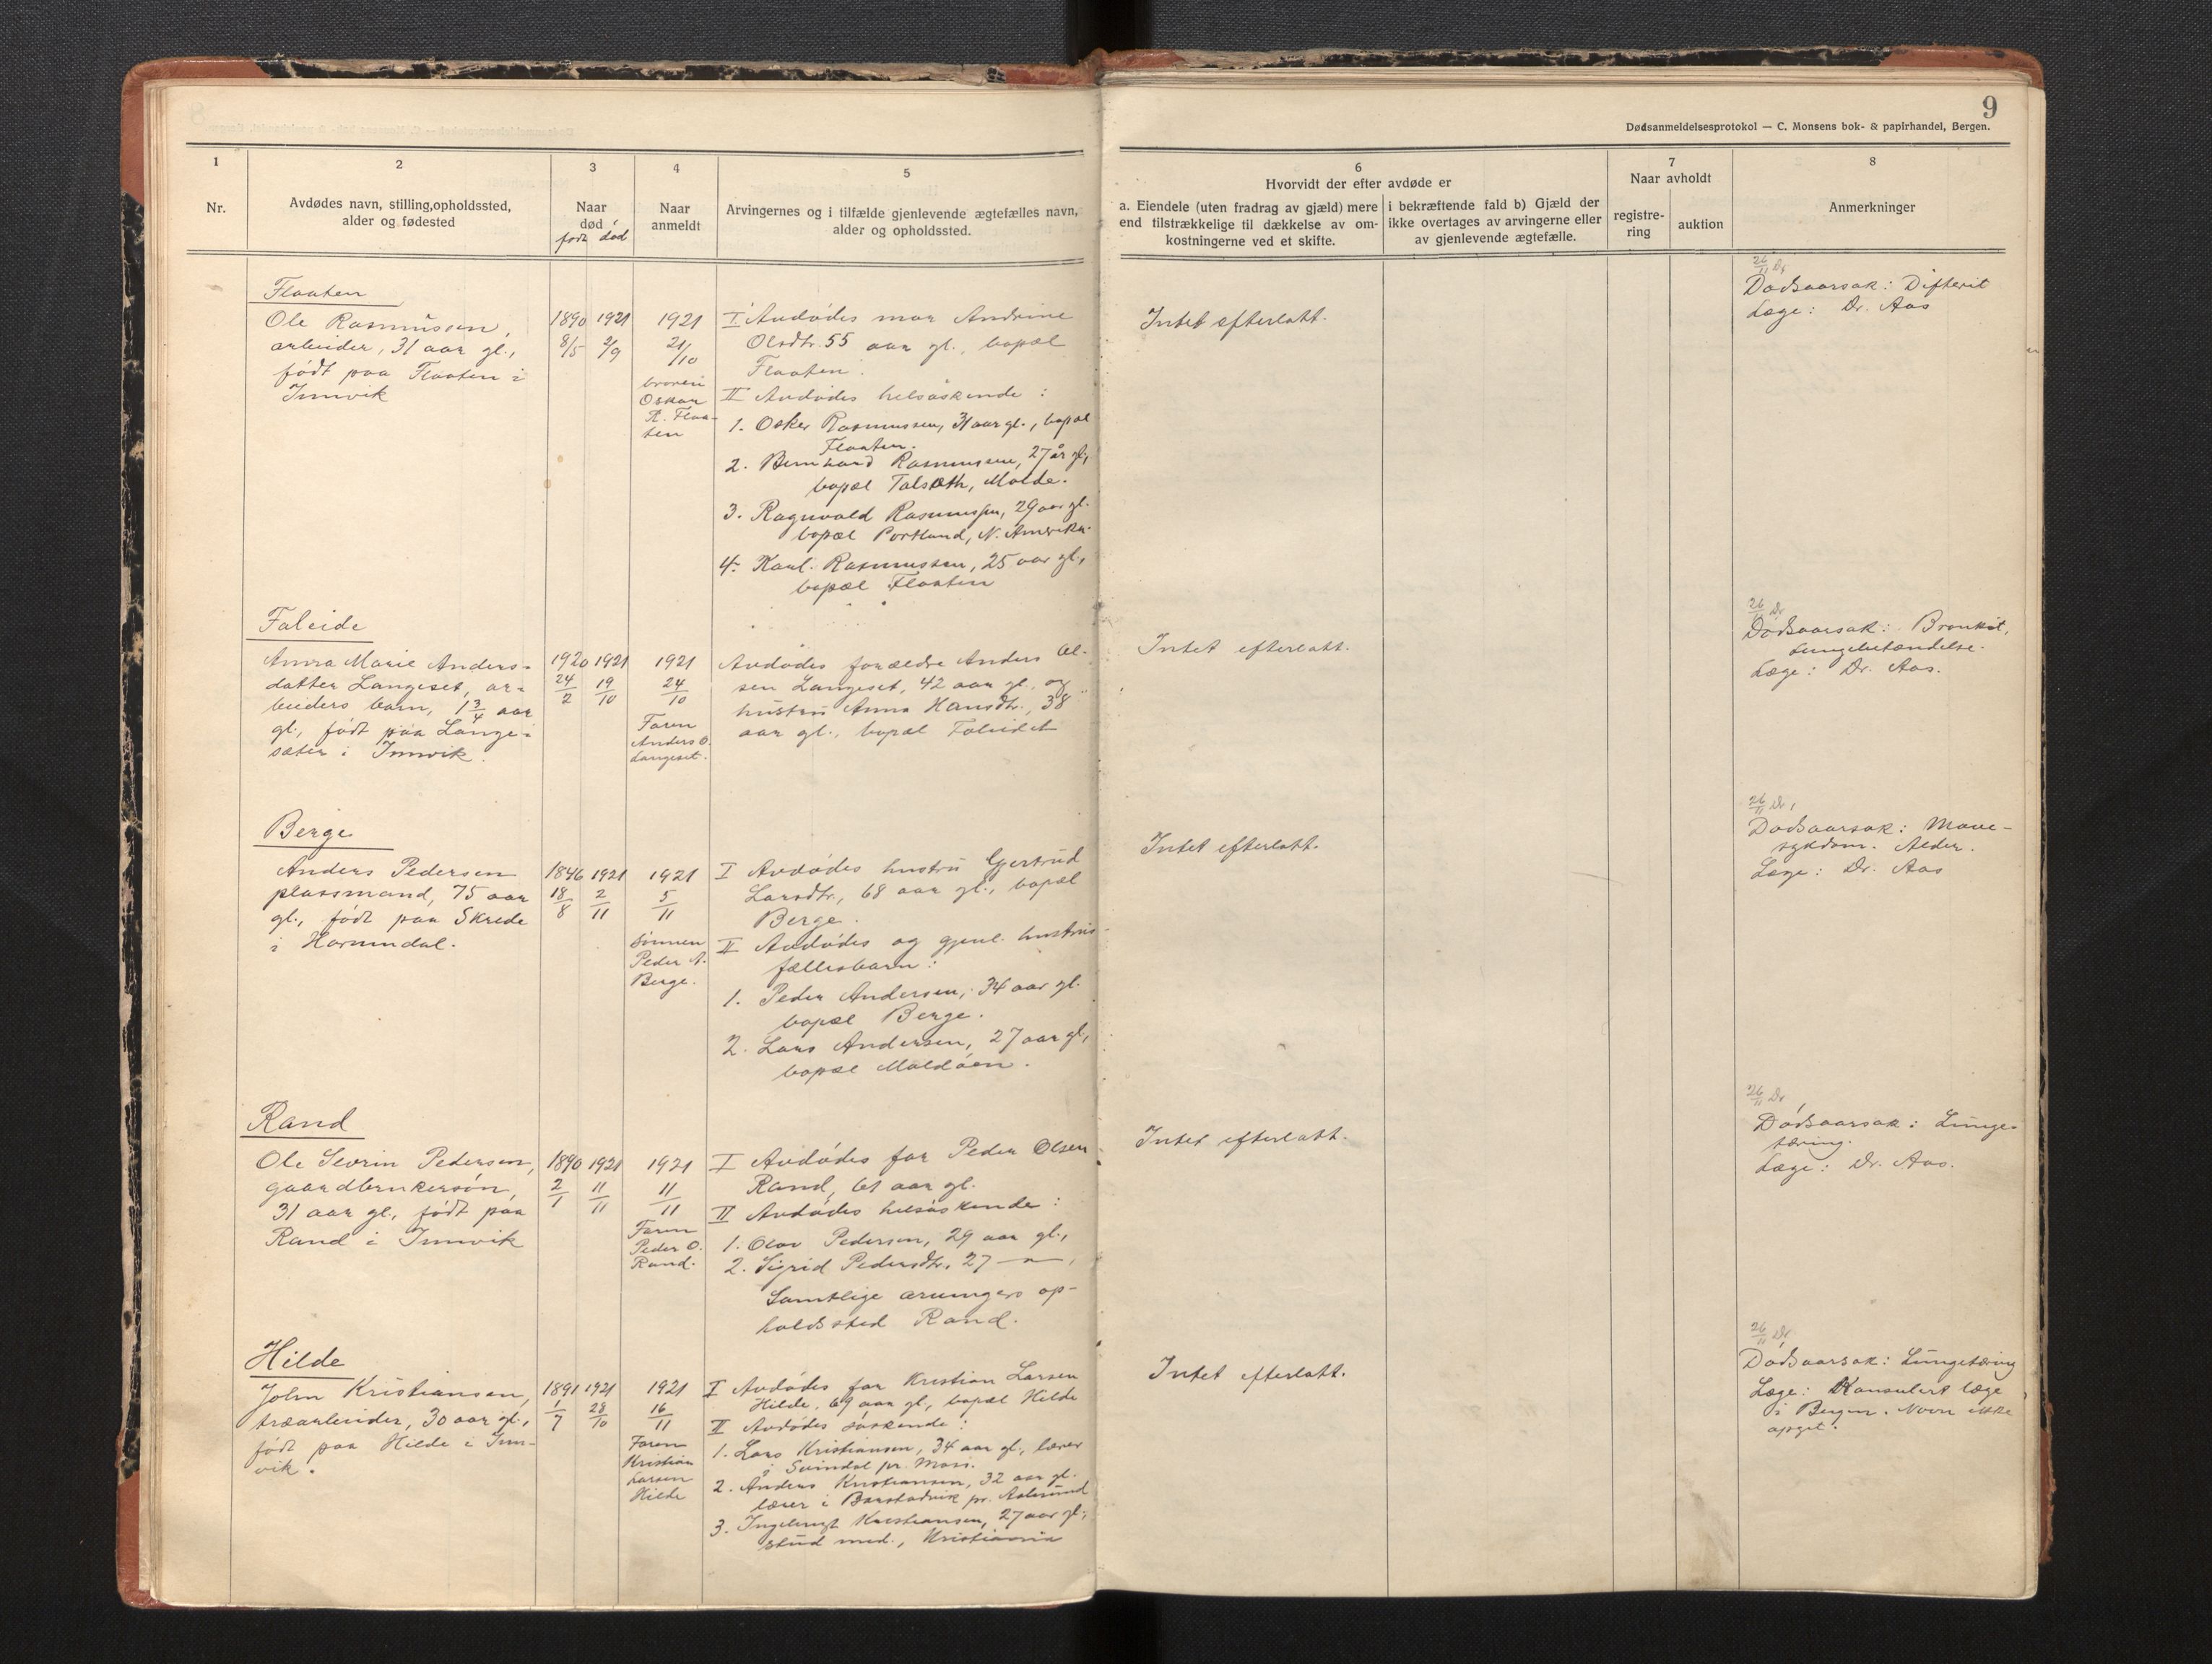 9
Dødsanmeldelsesprotokol — C. Monsens bok- & papirhandel, Bergen.
1
Nr.
2
Avdødes navn, stilling, opholdssted,
alder og fødested
3
Naar
død
født død
4
Naar
anmeldt
5
Arvingernes og i tilfælde gjenlevende ægtefælles navn,
alder og opholdssted.
6
Hvorvidt der efter avdøde er
a. Eiendele (uten fradrag av gjæld) mere
end tilstrækkelige til dækkelse av om-
kostningerne ved et skifte.
i bekræftende fald b) Gjæld der
ikke overtages av arvingerne eller
av gjenlevende ægtefælle.
7
Naar avholdt
registre-
ring
auktion
8
Anmerkninger
Flaaten
Ole Rasmussen,
arbeider, 31 aar gl.,
født paa Flaaten i
Innvik
1890 1921
8/5 2/9
1921
21/10
broren
Oskar
R. Flaa-
ten
I Avdødes mor Andrine
Olsdtr. 55 aar gl., bopæl
Flaaten.
II Avdødes helsøskende :
1. Oskar Rasmussen, 31 aar gl., bopæl
Flaaten.
2. Bernhard Rasmussen, 27 år gl.,
bopæl Talsæth, Molde.
3. Ragnvald Rasmussen, 29 aar gl.
bopæl Portland, N. Amerika.
4. Karl Rasmussen, 25 aar gl.,
bopæl Flaaten
Intet efterlatt.
26/11 Dr
Dødsaarsak : Difterit
Læge : Dr. Aas
Faleide
Anna Marie Anders-
datter Langeset, ar-
beiders barn, 1 3/4 aar
gl., født paa Lange-
sæter i Innvik.
1920 1921
24/2 19/10
1921
24/10
Faren
Anders O.
Langeset.
Avdødes forældre Anders Ol-
sen Langeset, 42 aar gl., og
hustru Anna Hansdtr., 38
aar gl., bopæl Faleidet
Intet efterlatt.
26/11 Dr
Dødsaarsak : Bronkit,
Lungebetændelse.
Læge : Dr. Aas.
Berge
Anders Pedersen
plassmand, 75 aar
gl., født paa Skrede
i Hornindal.
1846 1921
18/8 2/11
1921
5/11
Sønnen
Peder A.
Berge.
I Avdødes hustru Gjertrud
Larsdtr., 68 aar gl., bopæl
Berge.
II Avdødes og gjenl. hustrus
fællesbarn :
1. Peder Andersen, 34 aar gl.
bopæl Berge.
2. Lars Andersen, 27 aar gl.,
bopæl Maldøen.
Intet efterlatt.
26/11 Dr.
Dødsaarsak : Mave-
sykdom. Alder.
Læge : Dr. Aas
Rand
Ole Sevrin Pedersen,
gaardbrukersøn,
31 aar gl., født paa
Rand i Innvik
1890 1921
2/1 11/11
1921
11/11
Faren
Peder O.
Rand.
I Avdødes far Peder Olsen
Rand, 61 aar gl.
II Avdødes helsøskende :
1. Olav Pedersen, 29 aar gl.,
2. Sigrid Pedersdtr., 27 — " — ,
Samtlige arvingers op-
holdssted Rand.
Intet efterlatt.
26/11 Dr
Dødsaarsak : Lunge-
tæring.
Læge : Dr. Aas.
Hilde
John Kristiansen,
træarbeider, 30 aar gl.,
født paa Hilde i Inn-
vik.
1891 1921
1/7 28/10
1921
16/11
Faren
Kristian
Larsen
Hilde
I Avdødes far Kristian Larsen
Hilde, 69 aar gl., bopæl Hilde
II Avdødes søskende :
1. Lars Kristiansen, 34 aar gl., lærer
i Svindal pr. Moss.
2. Anders Kristiansen, 32 aar gl.
lærer i Barstadvik pr. Aalesund
3. Ingebrigt Kristiansen, 27 aar gl.,
stud med., Kristiania
Intet efterlatt.
26/11 Dr.
Dødsaarsak : Lungetæring
Læge : Konsulert læge
i Bergen. Navn ikke
opgit.